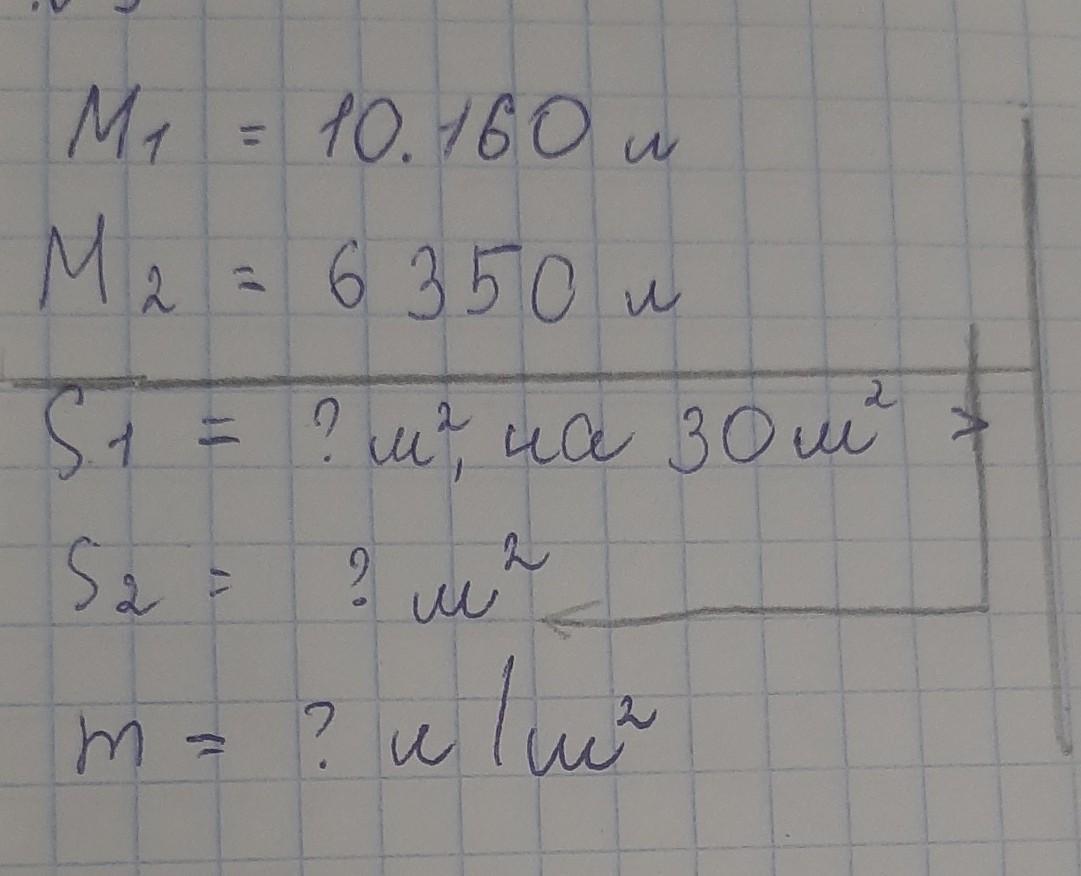 M1 = 10.160 л
M2 = 6 350 л
S1 = ? м², на 30 м² >
S2 = ? м²
m = ? л/м²